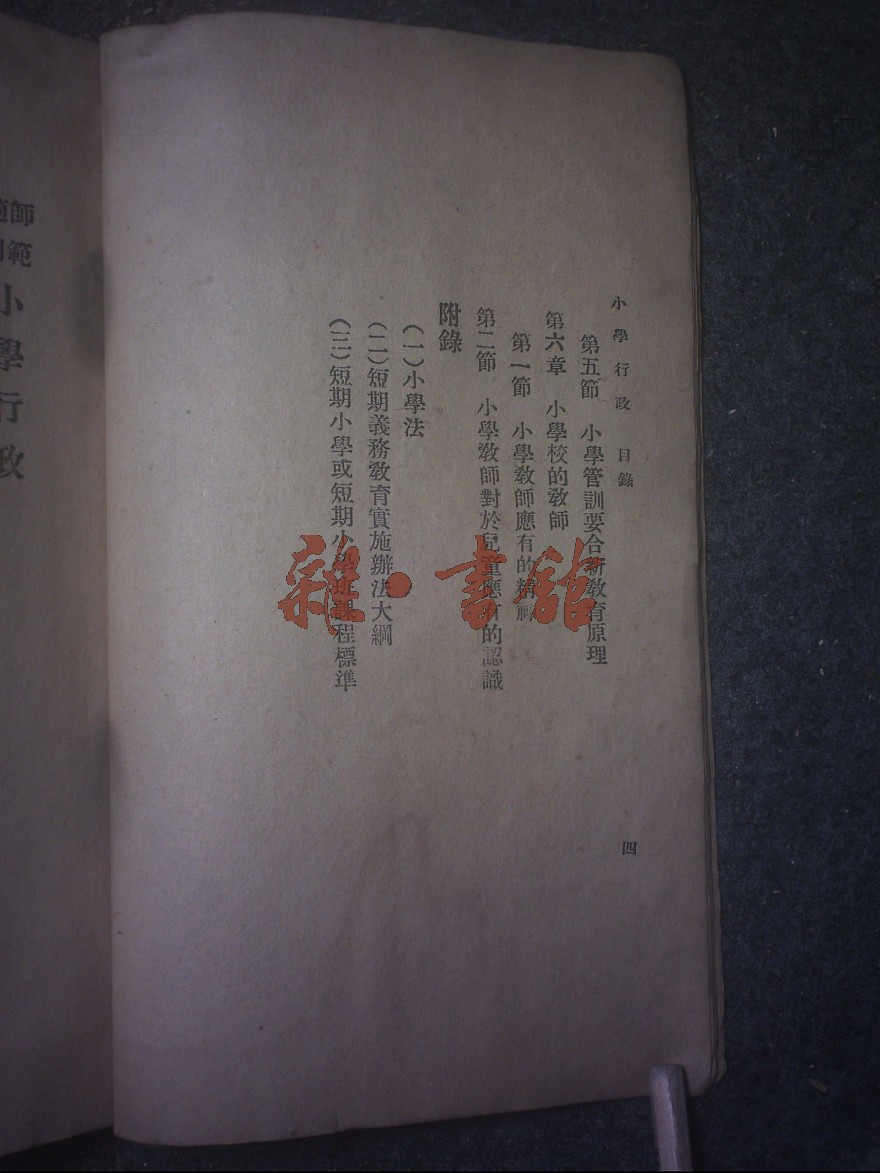 小學行政 目錄
第五節 小學管訓要合新教育原理
第六章 小學校的教師
第一節 小學教師應有的精神
第二節 小學教師對於兒童應有的認識
附錄
(一)小學法
(二)短期義務教育實施辦法大綱
(三)短期小學或短期小學班課程標準
四
師範
小學行政
雜·書館